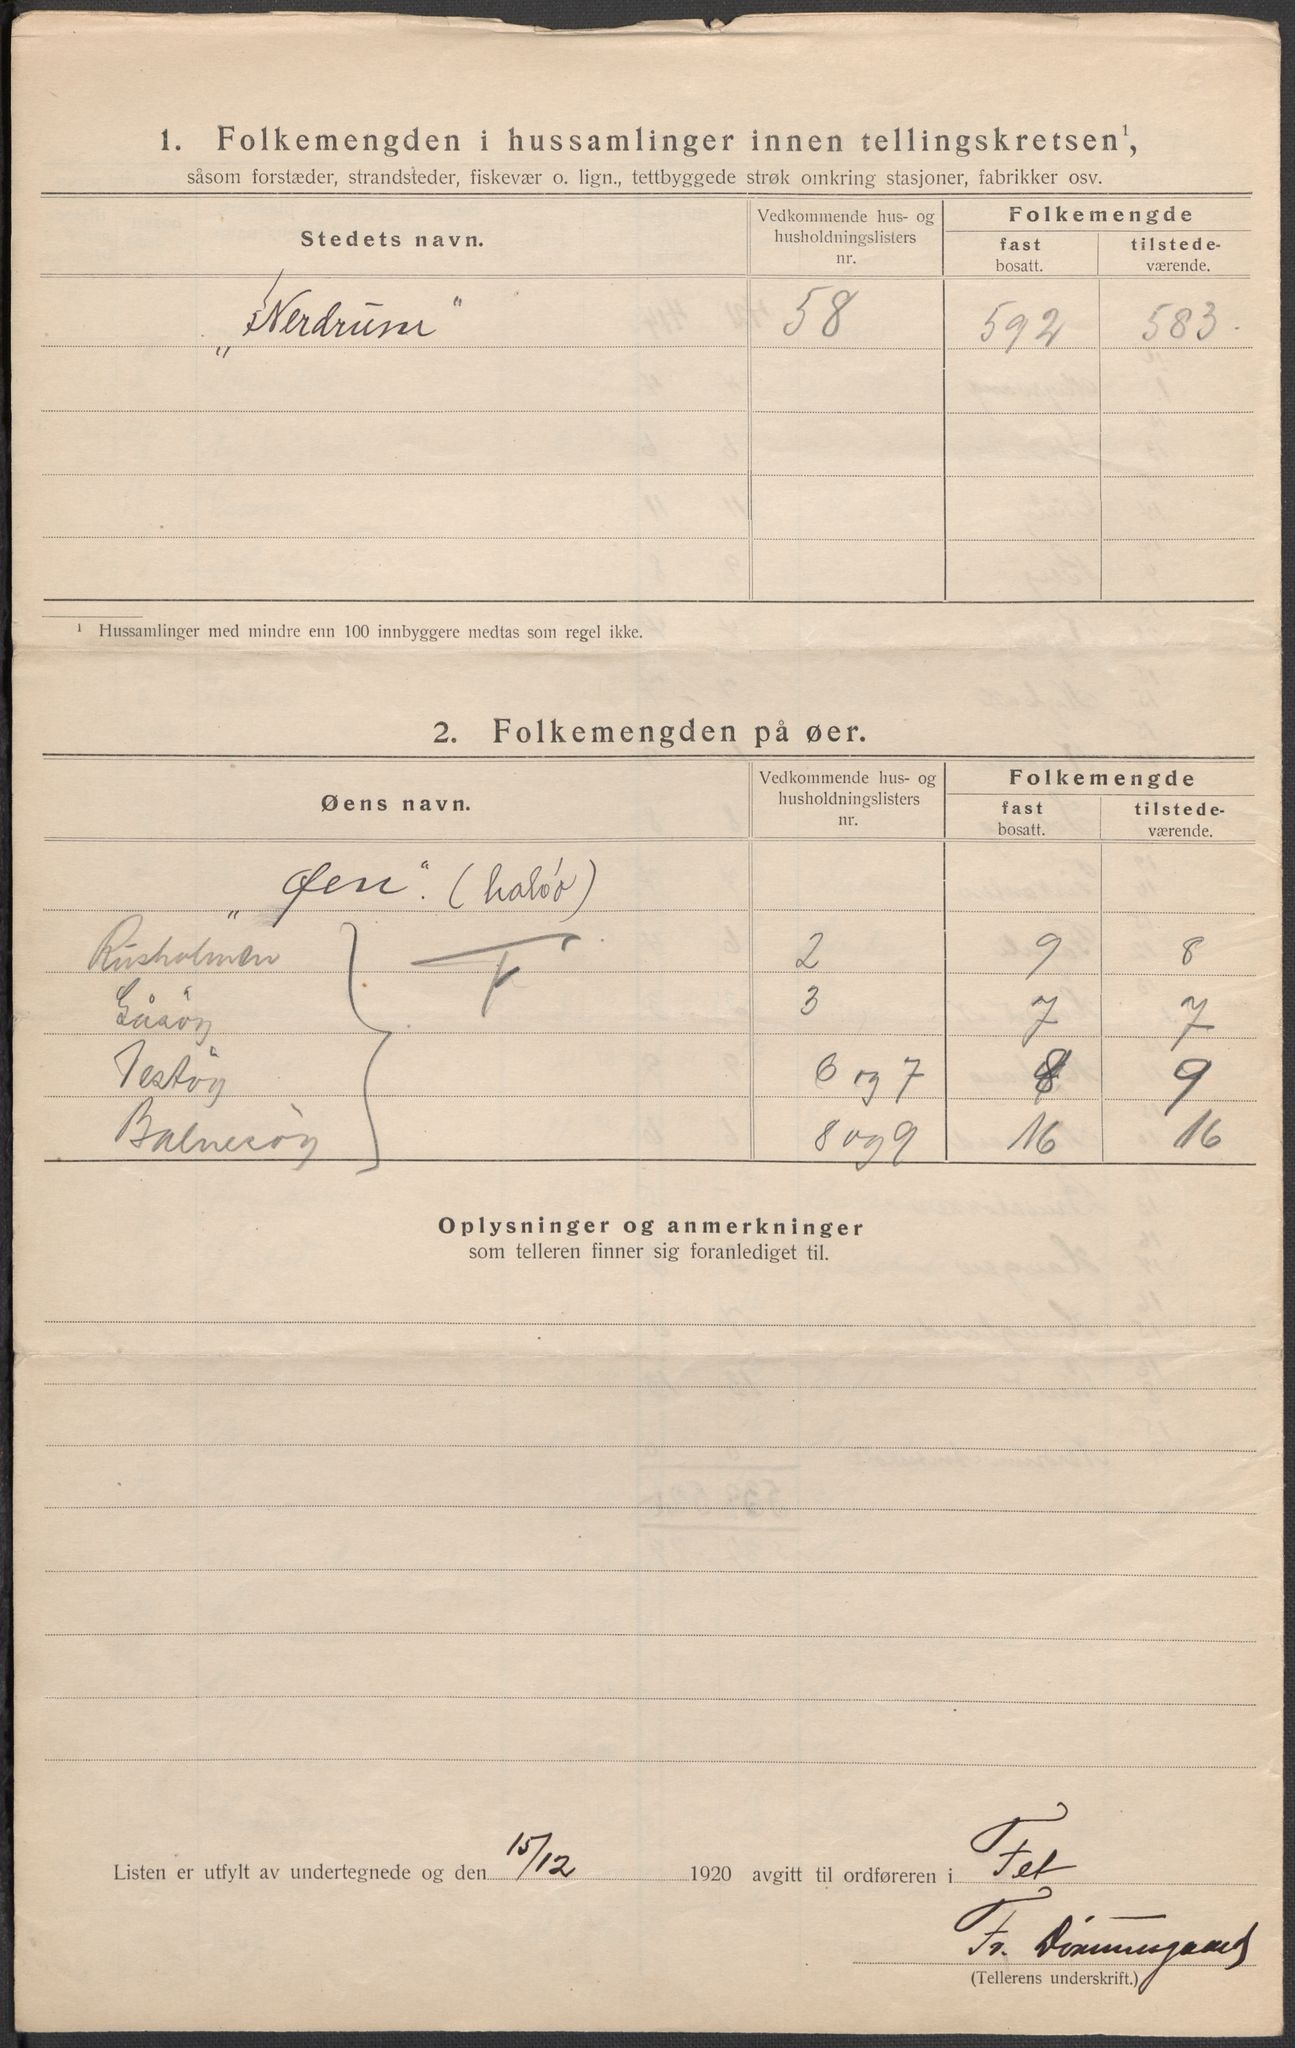 1. Folkemengden i hussamlinger innen tellingskretsen¹,
såsom forstæder, strandsteder, fiskevær o. lign., tettbyggede strøk omkring stasjoner, fabrikker osv.
Stedets navn. Vedkommende hus- og husholdningslisters nr. Folkemengde fast bosatt. tilstede-værende.
„Nerdrum“ 58 592 583.
¹ Hussamlinger med mindre enn 100 innbyggere medtas som regel ikke.
2. Folkemengden på øer.
Øens navn. Vedkommende hus- og husholdningslisters nr. Folkemengde fast bosatt. tilstede-værende.
„Øen“. (halvö)
Rusholmen 2 9 8
Gåsöy 3 7 7
Vestöy 6 og 7 8 9
Balnesöy 8 og 9 16 16
Oplysninger og anmerkninger
som telleren finner sig foranlediget til.
Listen er utfylt av undertegnede og den 15/12 1920 avgitt til ordføreren i Fet
Fr.
(Tellerens underskrift.)